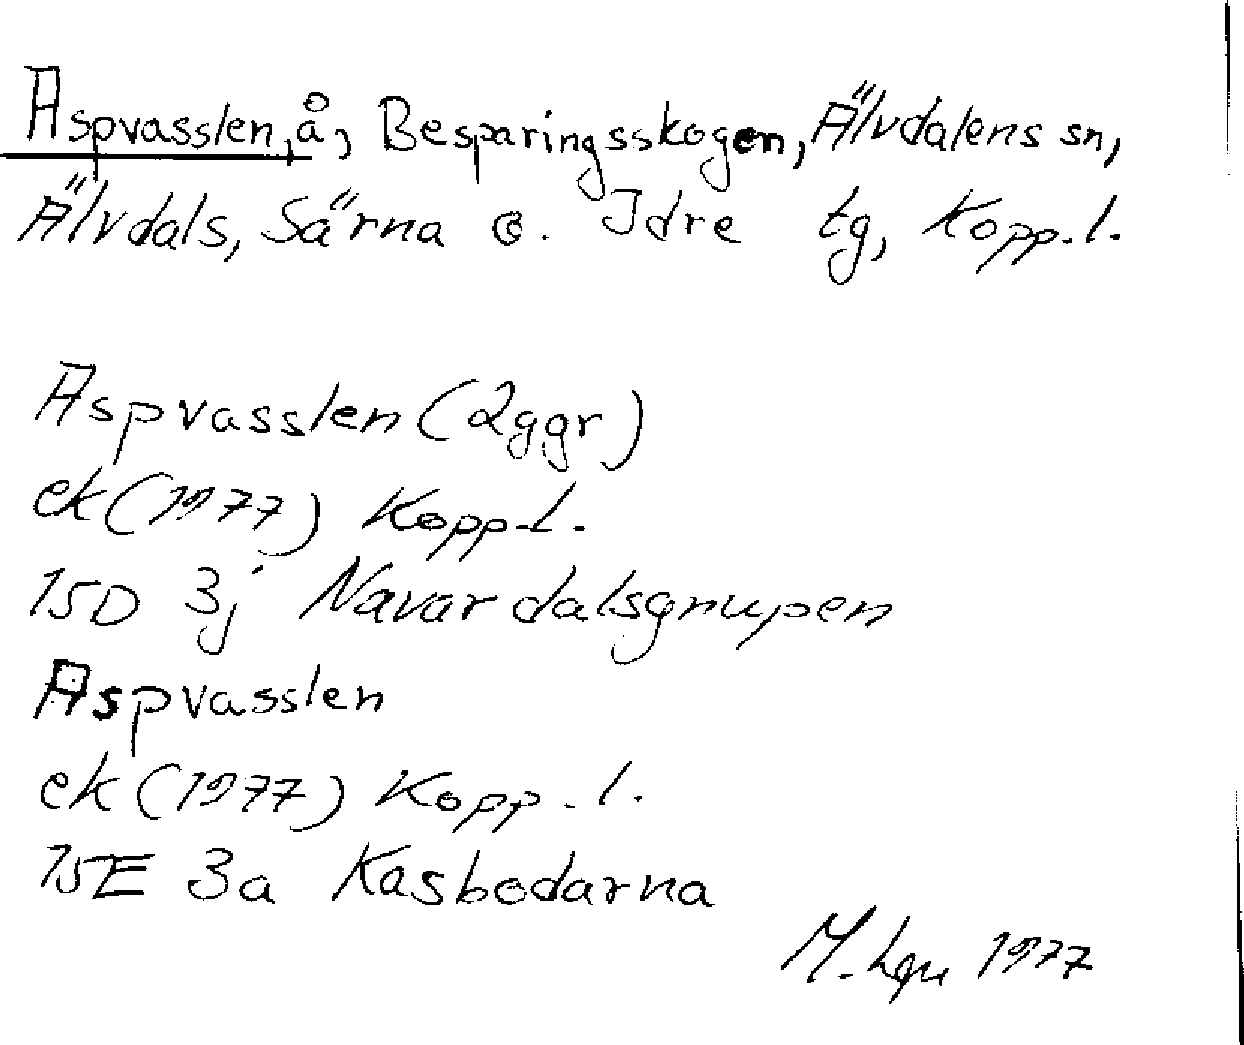 Aspvasslen, å, Besparingsskogen, Älvdalens sn,
Älvdals, Särna o. Idre tg, Kopp. l.
Aspvasslen (2 ggr)
ek (1977) Kopp. l.
15D 3j Navardalsgnupen
Aspvasslen
ek (1977) Kopp. l.
15E 3a Kasbodarna
M. 1977